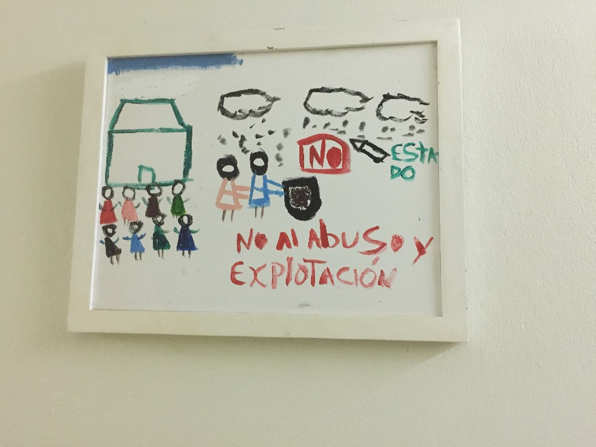 NO
ESTA
DO
NO Al AbUSO Y
EXPlOTACIÓN